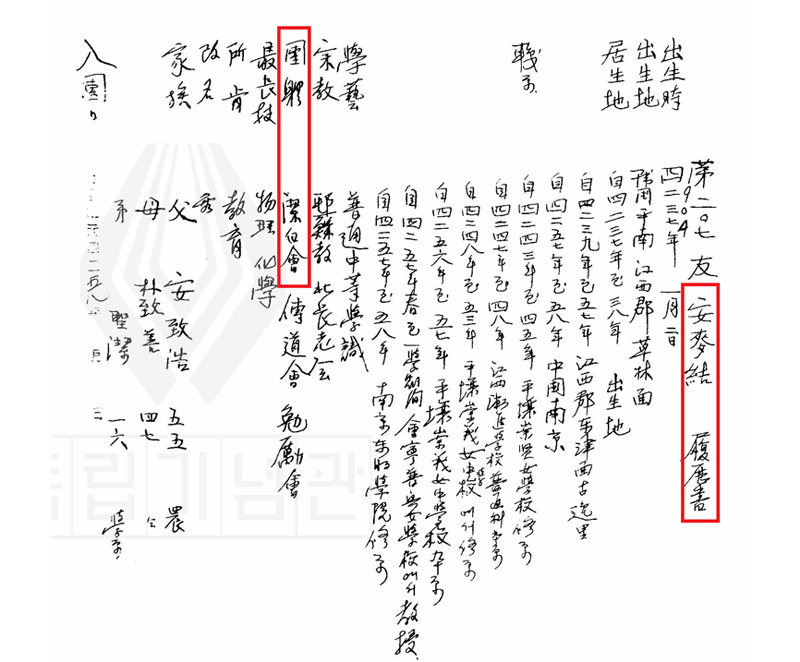 第二〇七友 安麥結 履歷書
1904
出生時 四二三七年 一月二日
出生地 平南 江西郡 草林面
居生地 自四二三七年至三八年 出生地
自四二三九年至五七年 江西郡東津面古逸里
自四二五七年至五八年 中國南京
職事 自四二四三年至四五年 平壤崇賢女學校修了
自四二四七年至四八年 江西漸進學校普通科
自四二四八年至五三年 平壤崇義女中學校에서修了
自四二五六年至五七年 平壤崇義女中學校卒了
自四二五七年春至一學期間 會寧普興女學校에서 教授
自四二五七年至五八年 南京东明學院修了
學藝 普通中等學識
宗教 耶穌教 北長老会
團體 潔白會 傳道會 勉勵會
最長技 物理化學
所肯 教育
改名
家族 父 安致浩 五五 農
母 朴致善 四七 仝
弟 聖潔 一六 學生
入團日
독립기념관